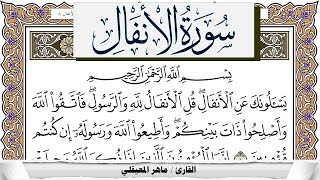 سُورَةُ الْأَنْفَالِ
بِسْمِ اللَّهِ الرَّحْمَٰنِ الرَّحِيمِ
يَسْـَٔلُونَكَ عَنِ الْأَنْفَالِ ۖ قُلِ الْأَنْفَالُ لِلَّهِ وَالرَّسُولِ ۖ فَاتَّقُوا اللَّهَ
وَأَصْلِحُوا ذَاتَ بَيْنِكُمْ ۖ وَأَطِيعُوا اللَّهَ وَرَسُولَهُ إِنْ كُنْتُمْ
القارئ / ماهر المعيقلي